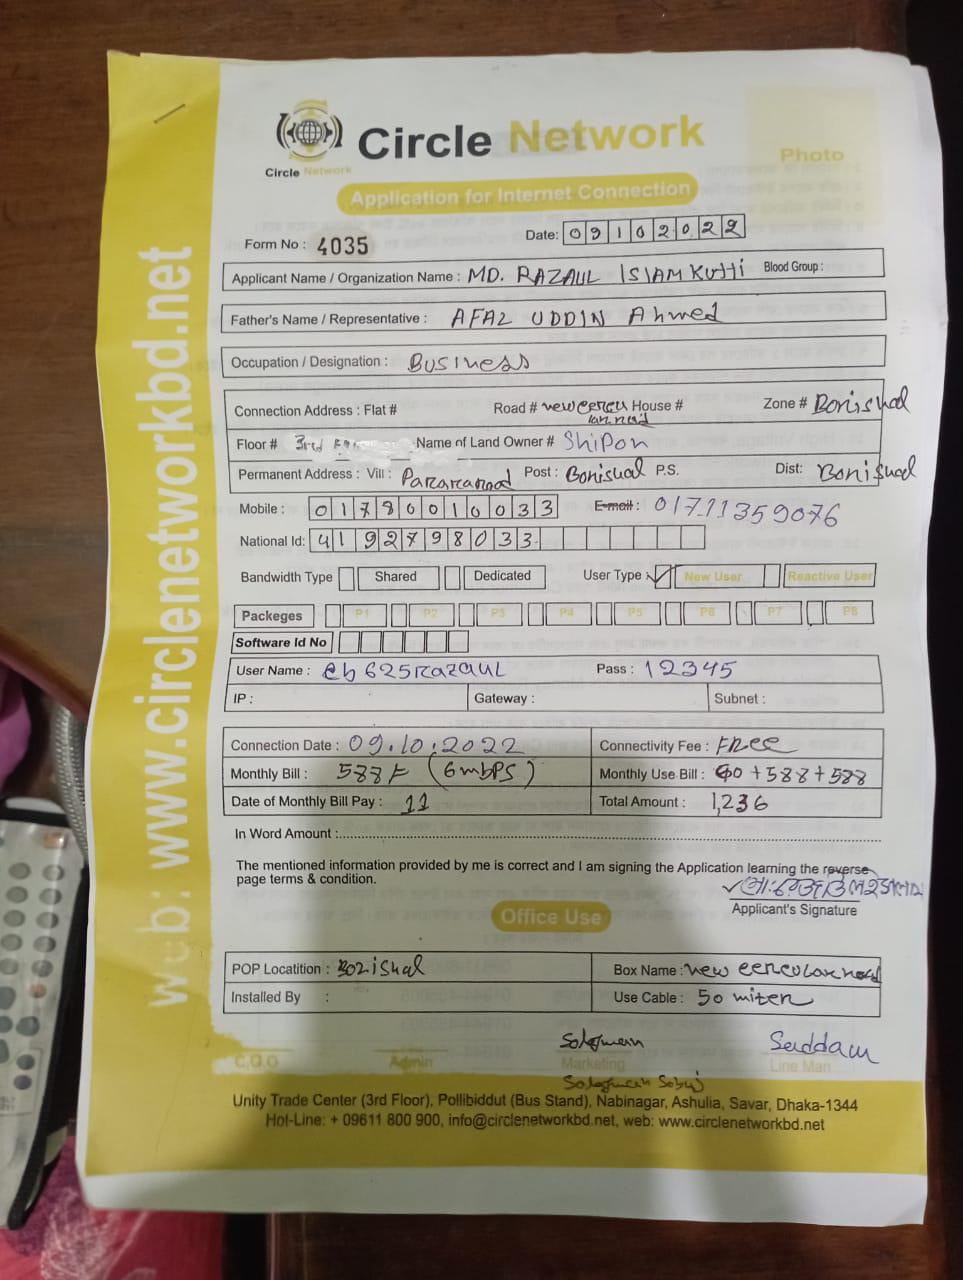 Circle Network
Circle Network
Photo
Application for Internet Connection
Form No : 4035
Date: 09102022
Applicant Name / Organization Name : MD. RAZAUL ISIAM KUTTi Blood Group :
Father's Name / Representative : AFAZ UDDIN Ahmed
Occupation / Designation : BUSiness
Connection Address : Flat # Road # House # Zone # Borishal
Floor # 3rd Name of Land Owner # Shipon
Permanent Address : Vill : Pararanod Post : Borishal P.S. Dist: Borishal
Mobile : 01780010033 E-mail : 01711359076
National Id: 4192798033
Bandwidth Type Shared Dedicated User Type New User Reactive User
Packeges P1 P2 P3 P4 P5 P6 P7 P8
Software Id No
User Name : cb625razaul Pass : 12345
IP : Gateway : Subnet :
Connection Date : 09.10.2022 Connectivity Fee : FRee
Monthly Bill : 588/= (6mbPS) Monthly Use Bill : 60+588+588
Date of Monthly Bill Pay : 11 Total Amount : 1,236
In Word Amount :
The mentioned information provided by me is correct and I am signing the Application learning the reverse
page terms & condition.
Applicant's Signature
Office Use
POP Locatition : Borishal Box Name : new
Installed By : Use Cable : 50 miter
Saddam
C,O,O Admin Marketing Line Man
Unity Trade Center (3rd Floor), Pollibiddut (Bus Stand), Nabinagar, Ashulia, Savar, Dhaka-1344
Hot-Line: + 09611 800 900, info@circlenetworkbd.net, web: www.circlenetworkbd.net
web: www.circlenetworkbd.net